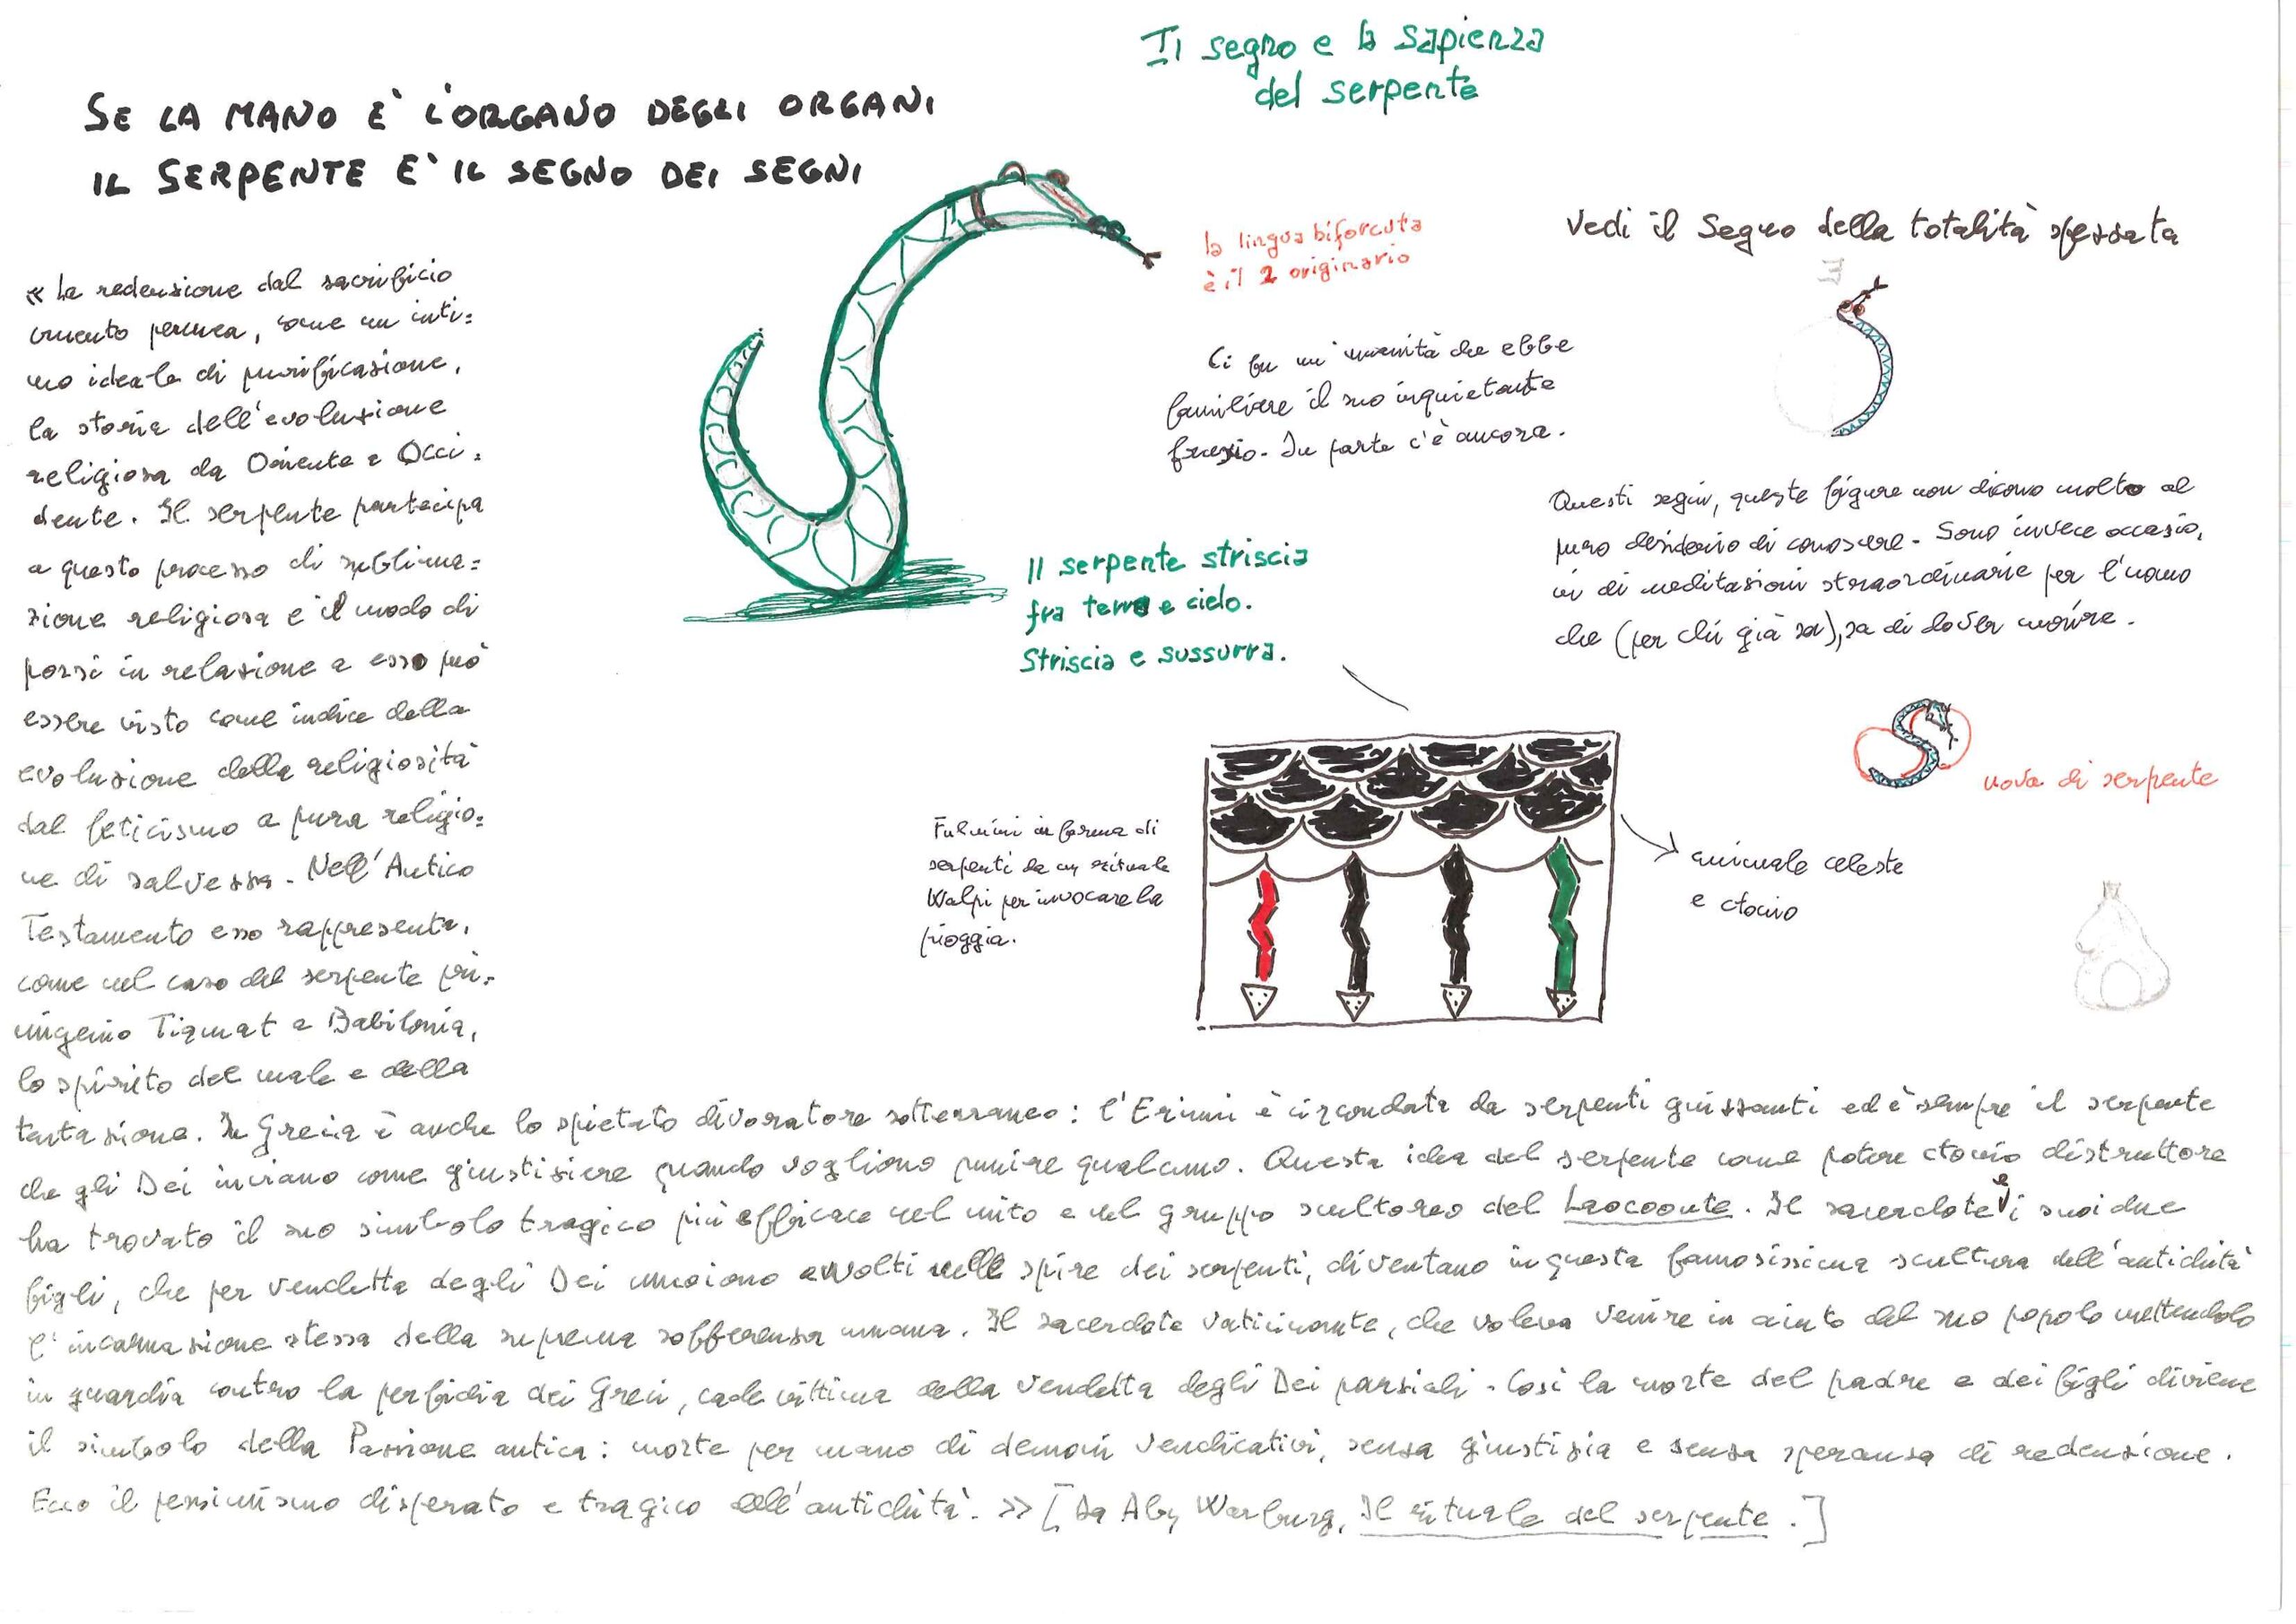 Il segno e la sapienza
del serpente
SE LA MANO E' L'ORGANO DEGLI ORGANI
IL SERPENTE E' IL SEGNO DEI SEGNI
la lingua biforcuta
è il 2 originario
Vedi il Segno della totalità spezzata
Ci fu un'umanità che ebbe
familiare il suo inquietante
fregio. In parte c'è ancora.
Questi segni, queste figure non dicono molto al
puro desiderio di conoscere. Sono invece occasio,
ni di meditazioni straordinarie per l'uomo
che (per chi già sa), sa di dover morire.
Il serpente striscia
fra terra e cielo.
Striscia e sussurra.
uova di serpente
Fulmini in forma di
serpenti da un rituale
Walpi per invocare la
pioggia.
animale celeste
e ctonio
« La redenzione dal sacrificio
cruento permea, come un inti=
mo ideale di purificazione,
la storia dell'evoluzione
religiosa da Oriente a Occi=
dente. Il serpente partecipa
a questo processo di sublima=
zione religiosa e il modo di
porsi in relazione a esso può
essere visto come indice della
evoluzione della religiosità
dal feticismo a pura religio=
ne di salvezza. Nell'Antico
Testamento esso rappresenta,
come nel caso del serpente pri=
migenio Tiamat a Babilonia,
lo spirito del male e della
tentazione. In Grecia è anche lo spietato divoratore sotterraneo: l'Erinni è circondata da serpenti guizzanti ed è sempre il serpente
che gli Dei inviano come giustiziere quando vogliono punire qualcuno. Questa idea del serpente come potere ctonio distruttore
ha trovato il suo simbolo tragico più efficace nel mito e nel gruppo scultoreo del Laocoonte. Il sacerdote e i suoi due
figli, che per vendetta degli Dei muoiono avvolti nelle spire dei serpenti, diventano in questa famosissima scultura dell'antichità
l'incarnazione stessa della suprema sofferenza umana. Il sacerdote vaticinante, che voleva venire in aiuto del suo popolo mettendolo
in guardia contro la perfidia dei Greci, cade vittima della vendetta degli Dei parziali. Così la morte del padre e dei figli diviene
il simbolo della Passione antica: morte per mano di demoni vendicativi, senza giustizia e senza speranza di redenzione.
Ecco il pessimismo disperato e tragico dell'antichità. >> [Da Aby Warburg, Il rituale del serpente.]